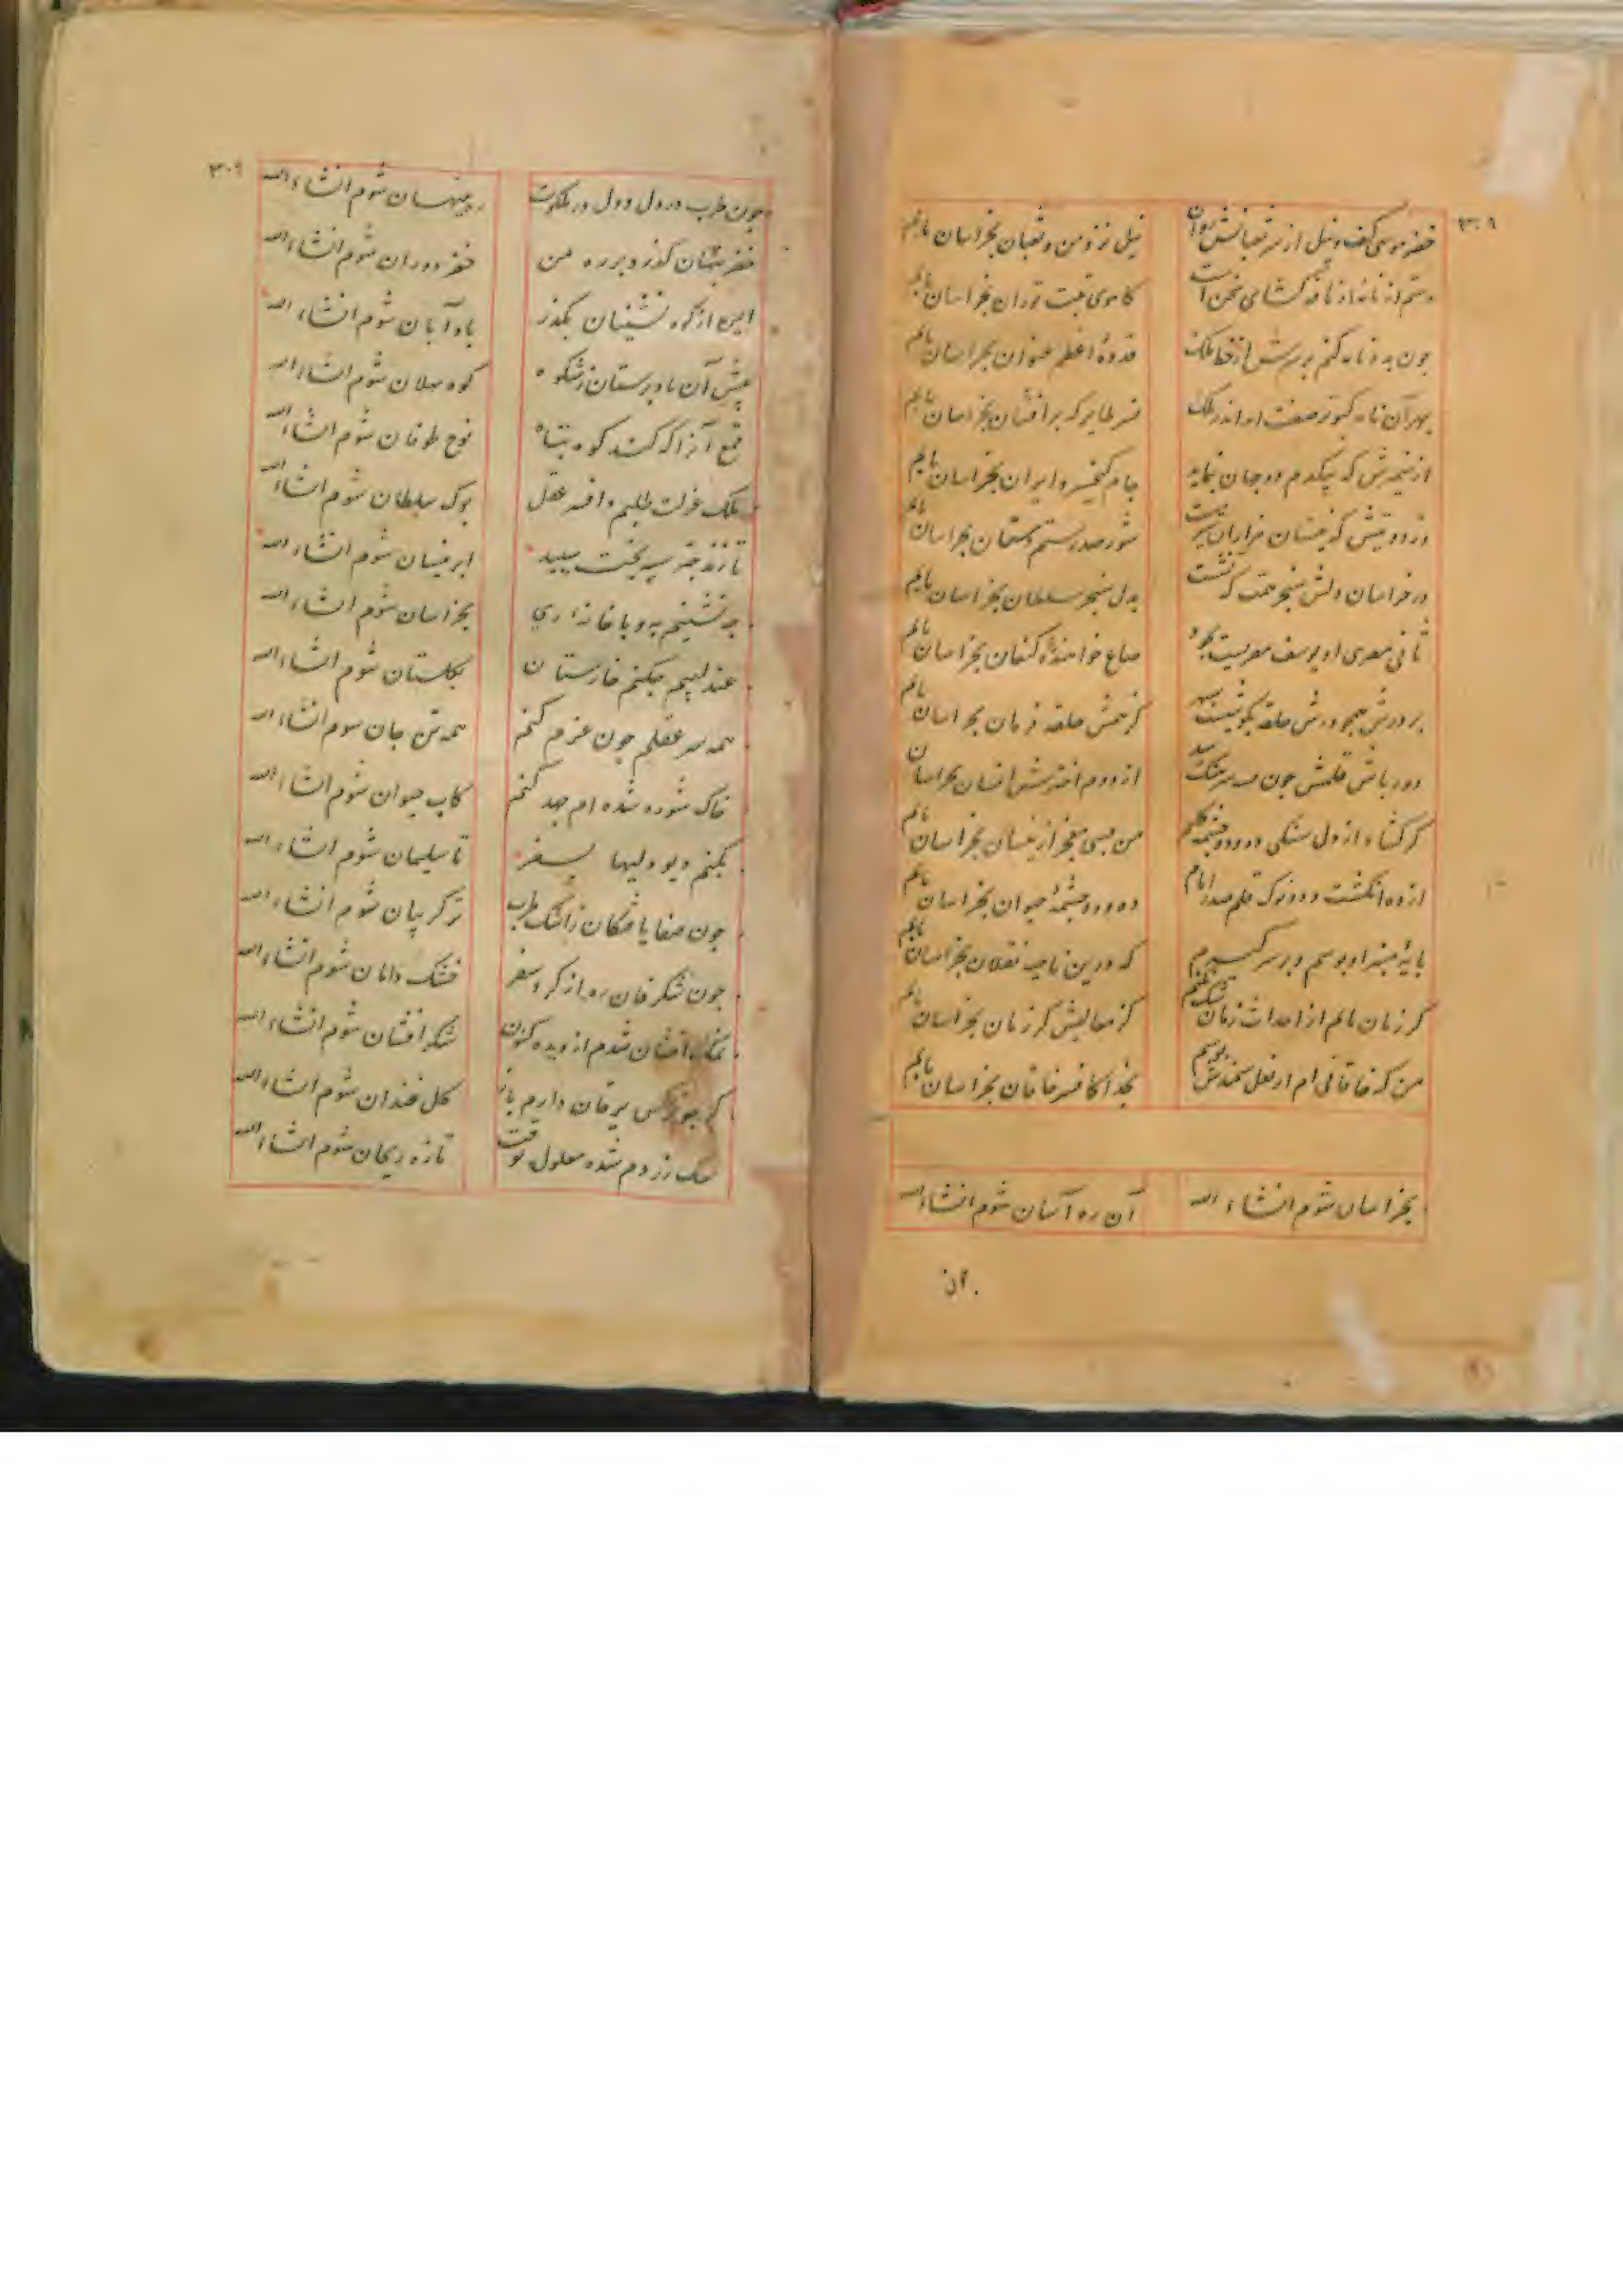 ۳۰۹
خضر موسی کف و نیل از سر ثعبانش روان نیل زر و من و ثعبان بخراسان یابم
دستم از نامه او نافه گشای سخن است کاهوی تبت توران بخراسان یابم
چون بدو نامه کنم بر سرش از خط ملک قدوهٔ اعظم عنوان بخراسان یابم
بهر آن نامه کبوتر صفت اندر ملک نسر طایر که پر افشان بخراسان یابم
از ضمیرش که بیکدم دو جهان بنماید جام کیخسرو ایران بخراسان یابم
شور صد رستم دستان بخراسان یابم
در خراسان دلش سنجر همت که نشست بدل سنجر سلطان بخراسان یابم
ثانی مصری او یوسف مصریست بجود صاع خواهندهٔ کنعان بخراسان یابم
بر درش همچو درش حلقه بگوشست سپهر کز خمش حلقه فرمان بخراسان یابم
دورباش قلمش چون
گر گشاد از دل سنگی ده و دو چشمه کلیم من بسی معجز ازینسان بخراسان یابم
از ده انگشت و دو نوک قلم صدر امام ده و دو چشمهٔ حیوان بخراسان یابم
پایهٔ منبر او بوسم و بر سر گیرم که درین ناحیه نقلان بخراسان یابم
گر زمان یابم از احداث زمان شک نکنم کز معالیش گر زمان بخراسان یابم
من که خاقانی ام ار نعل سمندش بوسم بخدا کافسر خاقان بخراسان یابم
بخراسان شوم انشاء الله آن ره آسان شوم انشاء الله
۳۰۹
چون طرب در دل و دل در ملکوت ره پنهسان شوم انشاء الله
خضر پنهان گذرد بر ره من خضر دوران شوم انشاء الله
ایمه از کوه نشینان بگذر باد آبان شوم انشاء الله
پیش آن باد پرستان بشکوه کوه سهلان شوم انشاء الله
قمع آنرا که کند کوه پناه نوح طوفان شوم انشاء الله
ملک عزلت طلبم و افسر عقل بوک سلطان شوم انشاء الله
تا زند چتر سیه بخت سپید ابر نیسان شوم انشاء الله
چه نشینم به وبا خانه ری بخراسان شوم انشاء الله
عندلیبم چکنم خارستان بگلستان شوم انشاء الله
همه سر عقلم چون عزم کنم همه تن جان شوم انشاء الله
خاک شوره شده ام جهد کنم کاب حیوان شوم انشاء الله
بکنم دیو دلیها بسفر تا سلیمان شوم انشاء الله
چون صفا یافتگان ز اشک طرب تر گریبان شوم انشاء الله
چون شکرفان ره از گرد سفر خشک دامان شوم انشاء الله
نمک افشان شدم از دیده کنون شکر افشان شوم انشاء الله
گر چو نرگس یرقان دارم باز گل خندان شوم انشاء الله
شده معلول بوقت تازه ریحان شوم انشاء الله
آن